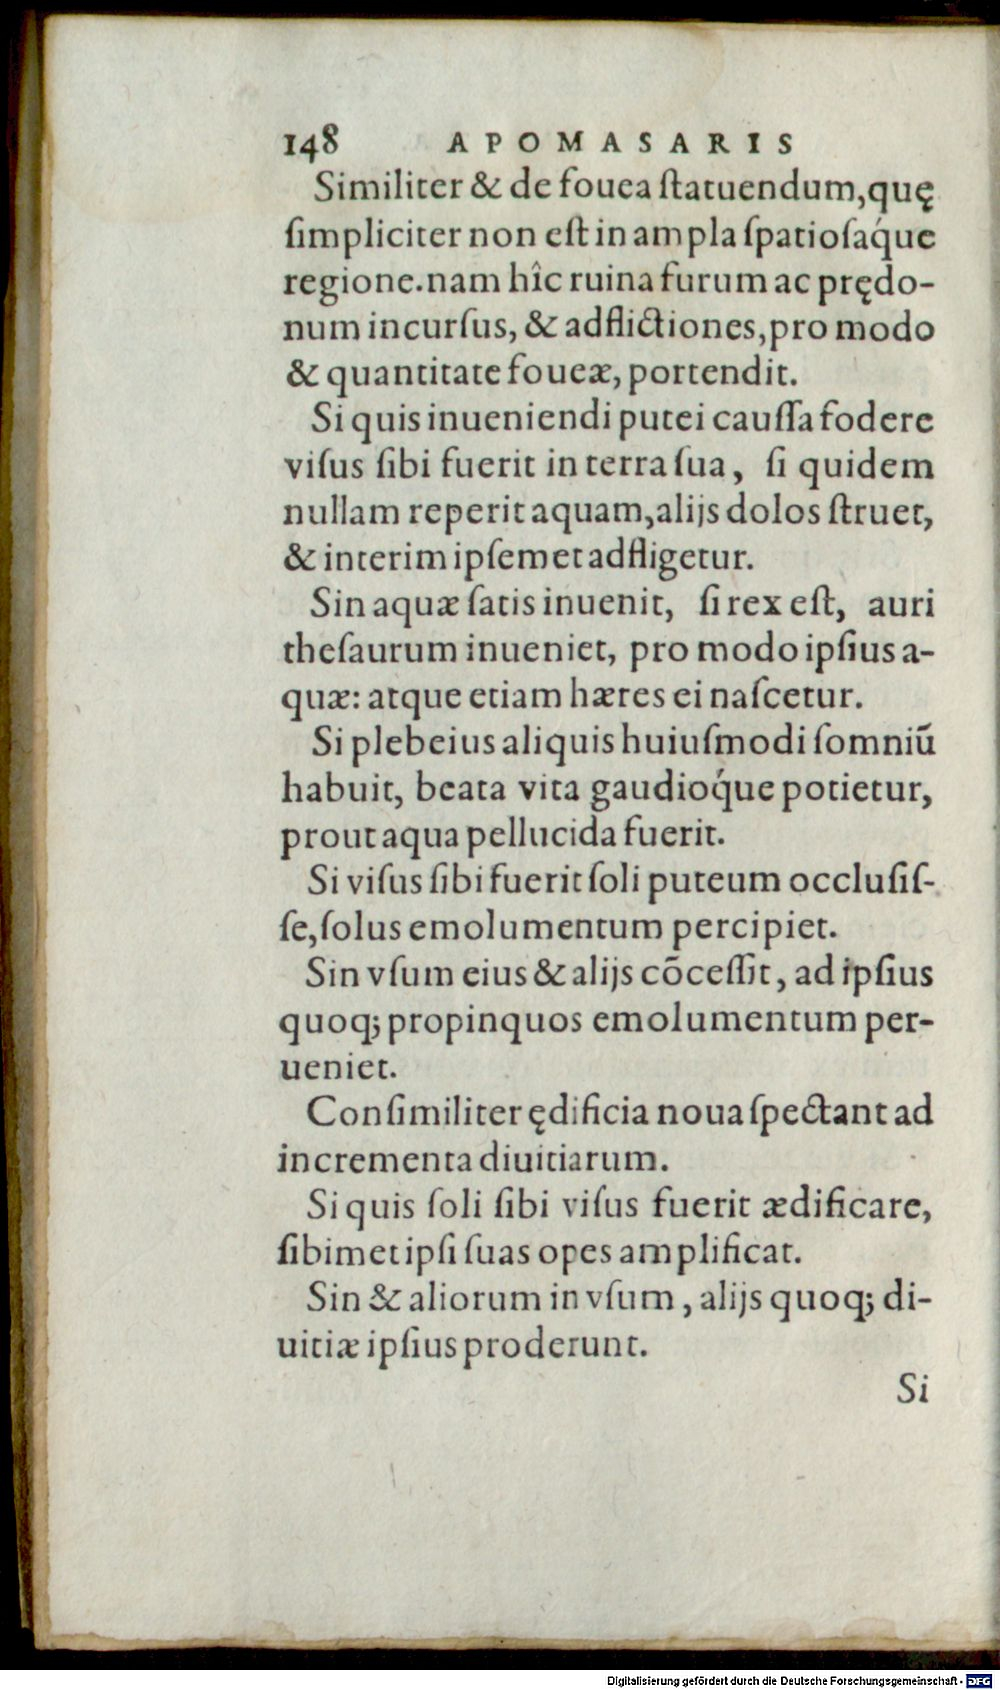 148 APOMASARIS
Similiter & de fouea ſtatuendum, quę
ſimpliciter non eſt in ampla ſpatioſaq́ue
regione. nam hîc ruina furum ac prędo-
num incurſus, & adflictiones, pro modo
& quantitate foueæ, portendit.
Si quis inueniendi putei cauſſa fodere
viſus ſibi fuerit in terra ſua, ſi quidem
nullam reperit aquam, alijs dolos ſtruet,
& interim ipſemet adfligetur.
Sin aquæ ſatis inuenit, ſi rex eſt, auri
theſaurum inueniet, pro modo ipſius a-
quæ: atque etiam hæres ei naſcetur.
Si plebeius aliquis huiuſmodi ſomniū
habuit, beata vita gaudioq́ue potietur,
prout aqua pellucida fuerit.
Si viſus ſibi fuerit ſoli puteum occluſiſ-
ſe, ſolus emolumentum percipiet.
Sin vſum eius & alijs cōceſſit, ad ipſius
quoq; propinquos emolumentum per-
ueniet.
Conſimiliter ędificia noua ſpectant ad
incrementa diuitiarum.
Si quis ſoli ſibi viſus fuerit ædificare,
ſibimet ipſi ſuas opes amplificat.
Sin & aliorum in vſum, alijs quoq; di-
uitiæ ipſius proderunt.
Si
Digitalisierung gefördert durch die Deutsche Forschungsgemeinschaft - DFG